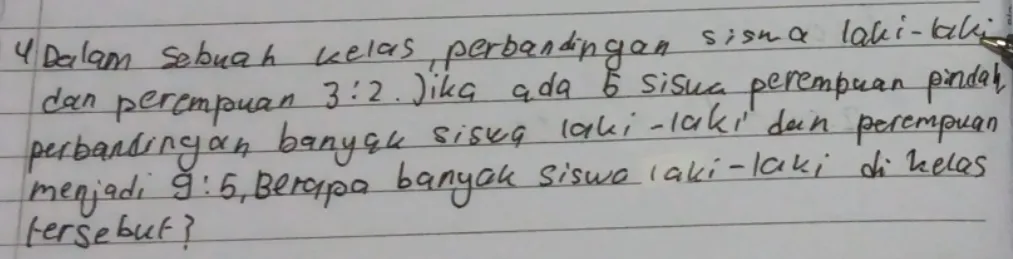 4 Dalam sebuah kelas, perbandingan siswa laki-laki
dan perempuan 3:2. Jika ada 5 siswa perempuan pindah,
perbandingan banyak siswa laki-laki dan perempuan
menjadi 9:5, Berapa banyak siswa laki-laki di kelas
tersebut?